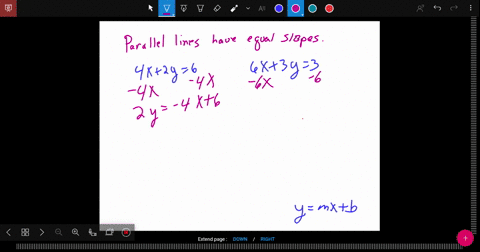 Parallel lines have equal slopes.
4x+2y=6 6x+3y=3
-4x -4x -6x -6
2y=-4x+6
y=mx+b
Extend page : DOWN / RIGHT